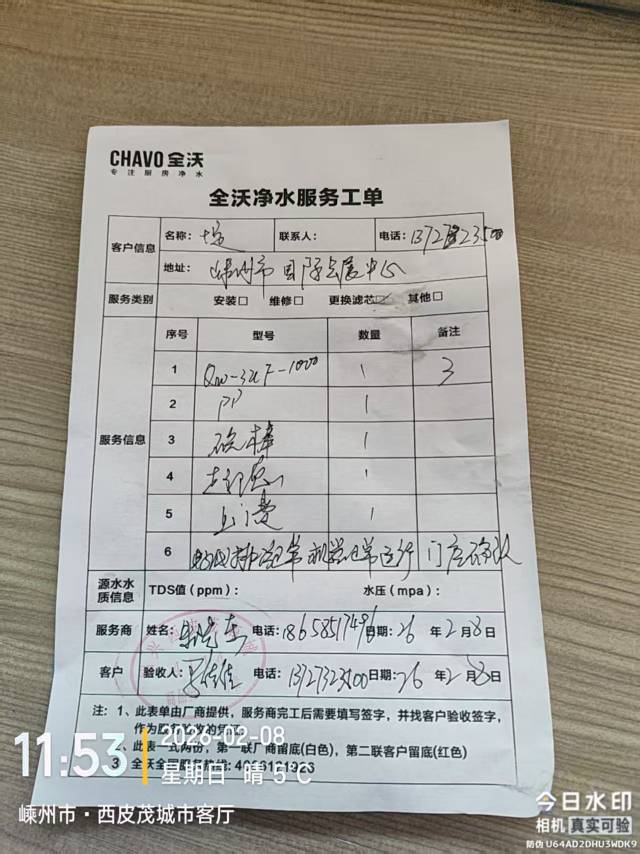 CHAVO 全沃
专注厨房净水
全沃净水服务工单
客户信息 名称: 联系人: 电话:
地址: 嵊州市国际会展中心
服务类别 安装□ 维修□ 更换滤芯☑ 其他□
服务信息 序号 型号 数量 备注
1 1 3
2 PP 1
3 碳棒 1
4 1
5 上门费 1
6 正常运行 门店确认
源水水质信息 TDS值(ppm): 水压(mpa):
服务商 姓名: 电话: 日期: 26 年 2 月 8 日
客户 验收人: 电话: 日期: 26 年 2 月 8 日
注: 1、此表单由厂商提供,服务商完工后需要填写签字,并找客户验收签字,
作为服务验收的凭
2、此表一式两份,第一联厂商留底(白色),第二联客户留底(红色)
3、全沃全国服务热线:
11:53
2026-02-08
星期日 晴 5℃
嵊州市·西皮茂城市客厅
今日水印
相机 真实可验
防伪 U64AD2DHU3WDK9